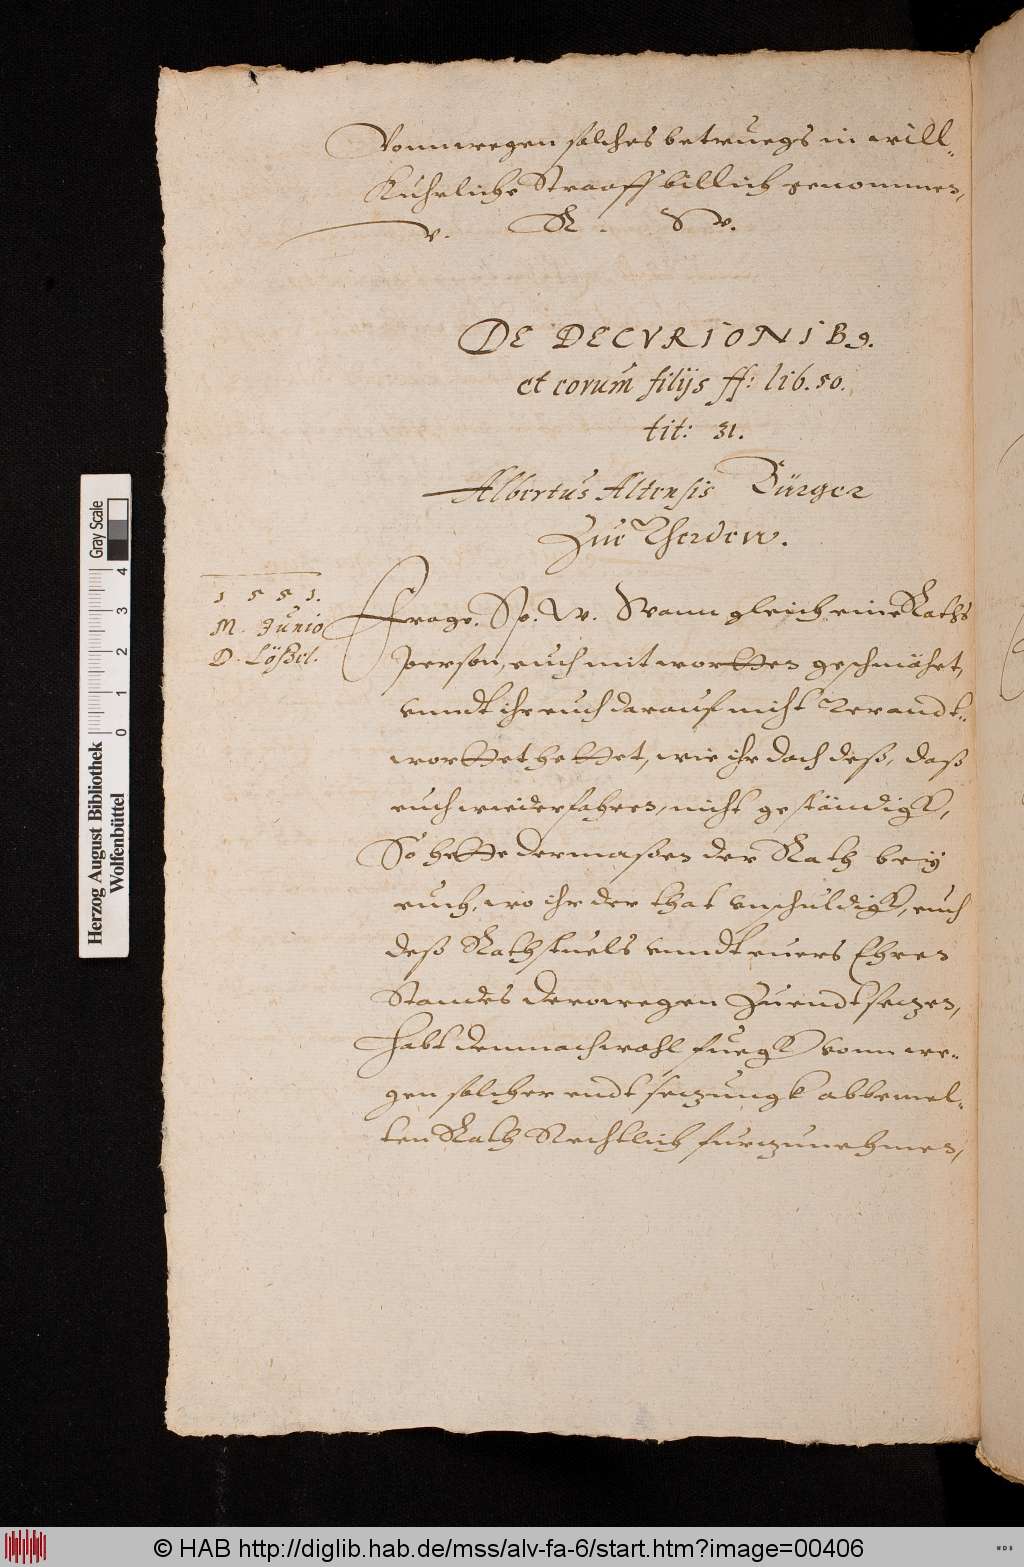 Vonnwegen solches betruegs in will-
kuhrliche Straaff billich genommen,
v. R. S w.
DE DECVRIONIB9.
et eorum filijs ff: lib. 50.
tit: 31.
Albertus Altensis Bürger
Zue
1 5 5 1.
M. Junio
D. Lößel.
Frage. Sp. W. Wann gleich eine Raths
person, euch mit wortten geschmähet,
vnndt ihr euch darauf nicht verandt-
worttet hettet, wie ihr doch deß, daß
euch wiederfahren, nicht geständigk,
So hette dermaßen der Rath beÿ
euch, wo ihr der that vnschuldigk, euch
deß Rathstuels vnndt euers Ehren
Standes derowegen Zuendtsetzen,
habt demnach wohl fuegk vonn we-
gen solcher endtsetzungk abbemel-
ten Rath Rechtlich furzunehmen,
Herzog August Bibliothek
Wolfenbüttel
0 1 2 3 4
Gray Scale
© HAB http://diglib.hab.de/mss/alv-fa-6/start.htm?image=00406
WDB